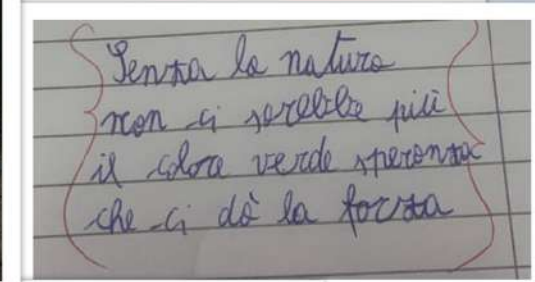 Senza la natura
non ci sarebbe più
il colore verde speranza
che ci dà la forza